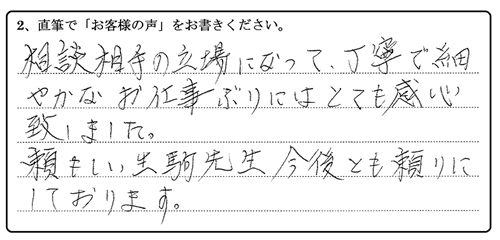 2、直筆で「お客様の声」をお書きください。
相談相手の立場になって、丁寧で細
やかなお仕事ぶりにはとても感心
致しました。
頼もしい生駒先生今後とも頼りに
しております。